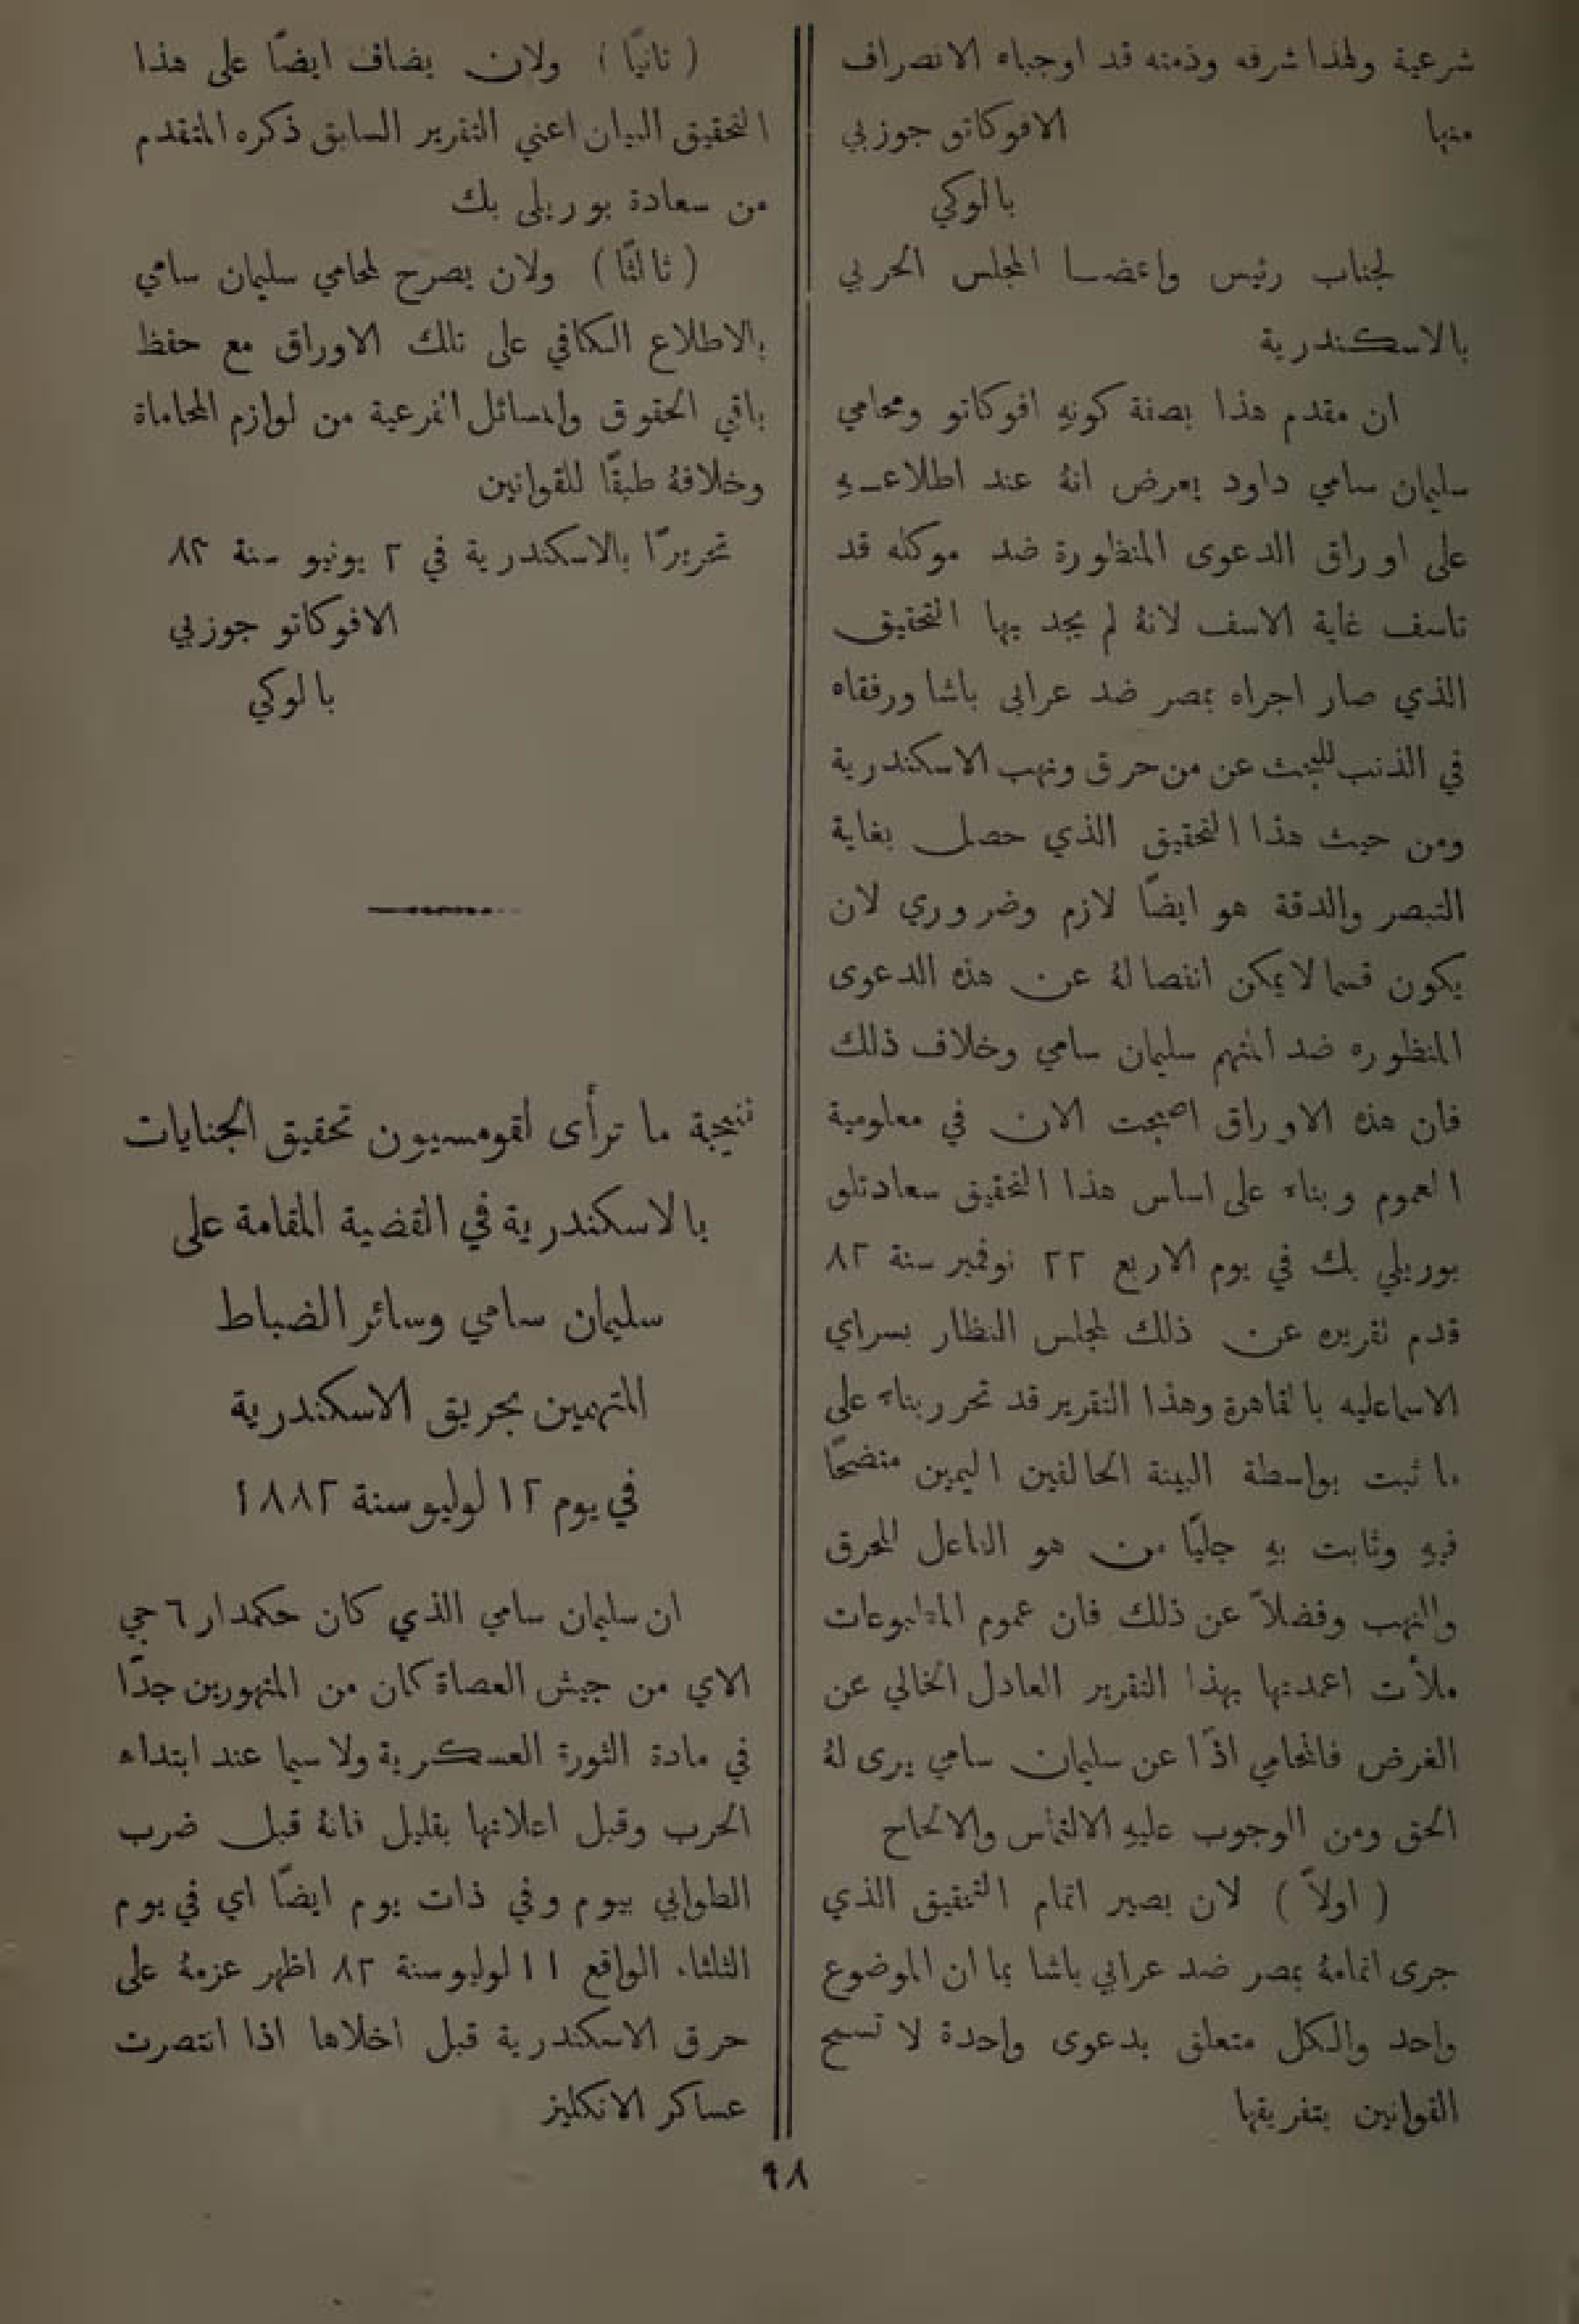 شرعية ولهذا شرفه وذمته قد اوجباه الانصراف
منها الافوكاتو جوزبي
بالوكي
لجناب رئيس واعضا المجلس الحربي
بالاسكندرية
ان مقدم هذا بصفة كونهِ افوكاتو ومحامي
سليمان سامي داود يعرض انهُ عند اطلاعهِ
على اوراق الدعوى المنظورة ضد موكله قد
تاسف غاية الاسف لانهُ لم يجد بها التحقيق
الذي صار اجراه بمصر ضد عرابي باشا ورفقاه
في الذنب للبحث عن من حرق ونهب الاسكندرية
ومن حيث هذا التحقيق الذي حصل بغاية
التبصر والدقة هو ايضًا لازم وضروري لان
يكون قسما لا يمكن انفصالهُ عن هذه الدعوى
المنظوره ضد المتهم سليمان سامي وخلاف ذلك
فان هذه الاوراق اصبحت الان في معلومية
العموم وبناء على اساس هذا التحقيق سعادتلو
بوريلي بك في يوم الاربع ٢٢ نوفمبر سنة ٨٢
قدم تقريره عن ذلك لمجلس النظار بسراي
الاسماعليه بالقاهرة وهذا التقرير قد تحرر بناء على
ما ثبت بواسطة البينة الحالفين اليمين متضحًا
فيهِ وثابت بهِ جليًا من هو الفاعل للحرق
والنهب وفضلاً عن ذلك فان عموم المطبوعات
ملأت اعمدتها بهذا التقرير العادل الخالي عن
الغرض فالمحامي اذًا عن سليمان سامي يرى لهُ
الحق ومن الوجوب عليهِ الالتماس والالحاح
( اولاً ) لان بصير اتمام التحقيق الذي
جرى اتمامهُ بمصر ضد عرابي باشا بما ان الموضوع
واحد والكل متعلق بدعوى واحدة لا تسمح
القوانين بتفريقها
( ثانيًا ) ولان يضاف ايضًا على هذا
التحقيق البيان اعني التقرير السابق ذكره المتقدم
من سعادة بوريلى بك
( ثالثًا ) ولان يصرح لمحامي سليمان سامي
بالاطلاع الكافي على تلك الاوراق مع حفظ
باقي الحقوق والمسائل الفرعية من لوازم المحاماة
وخلافهُ طبقًا للقوانين
تحريرًا بالاسكندرية في ٢ يونيو سنة ٨٣
الافوكاتو جوزبي
بالوكي
نتيجة ما ترأى لقومسيون تحقيق الجنايات
بالاسكندرية في القضية المقامة على
سليمان سامي وسائر الضباط
المتهمين بحريق الاسكندرية
في يوم ١٢ لوليو سنة ١٨٨٢
ان سليمان سامي الذي كان حكمدار ٦ جي
الاي من جيش العصاة كان من المتهورين جدًا
في مادة الثورة العسكرية ولا سيما عند ابتداء
الحرب وقبل اعلانها بقليل فانهُ قبل ضرب
الطوابي بيوم وفي ذات يوم ايضًا اي في يوم
الثلثاء الواقع ١١ لوليو سنة ٨٢ اظهر عزمهُ على
حرق الاسكندرية قبل اخلاها اذا انتصرت
عساكر الانكليز
٩٨